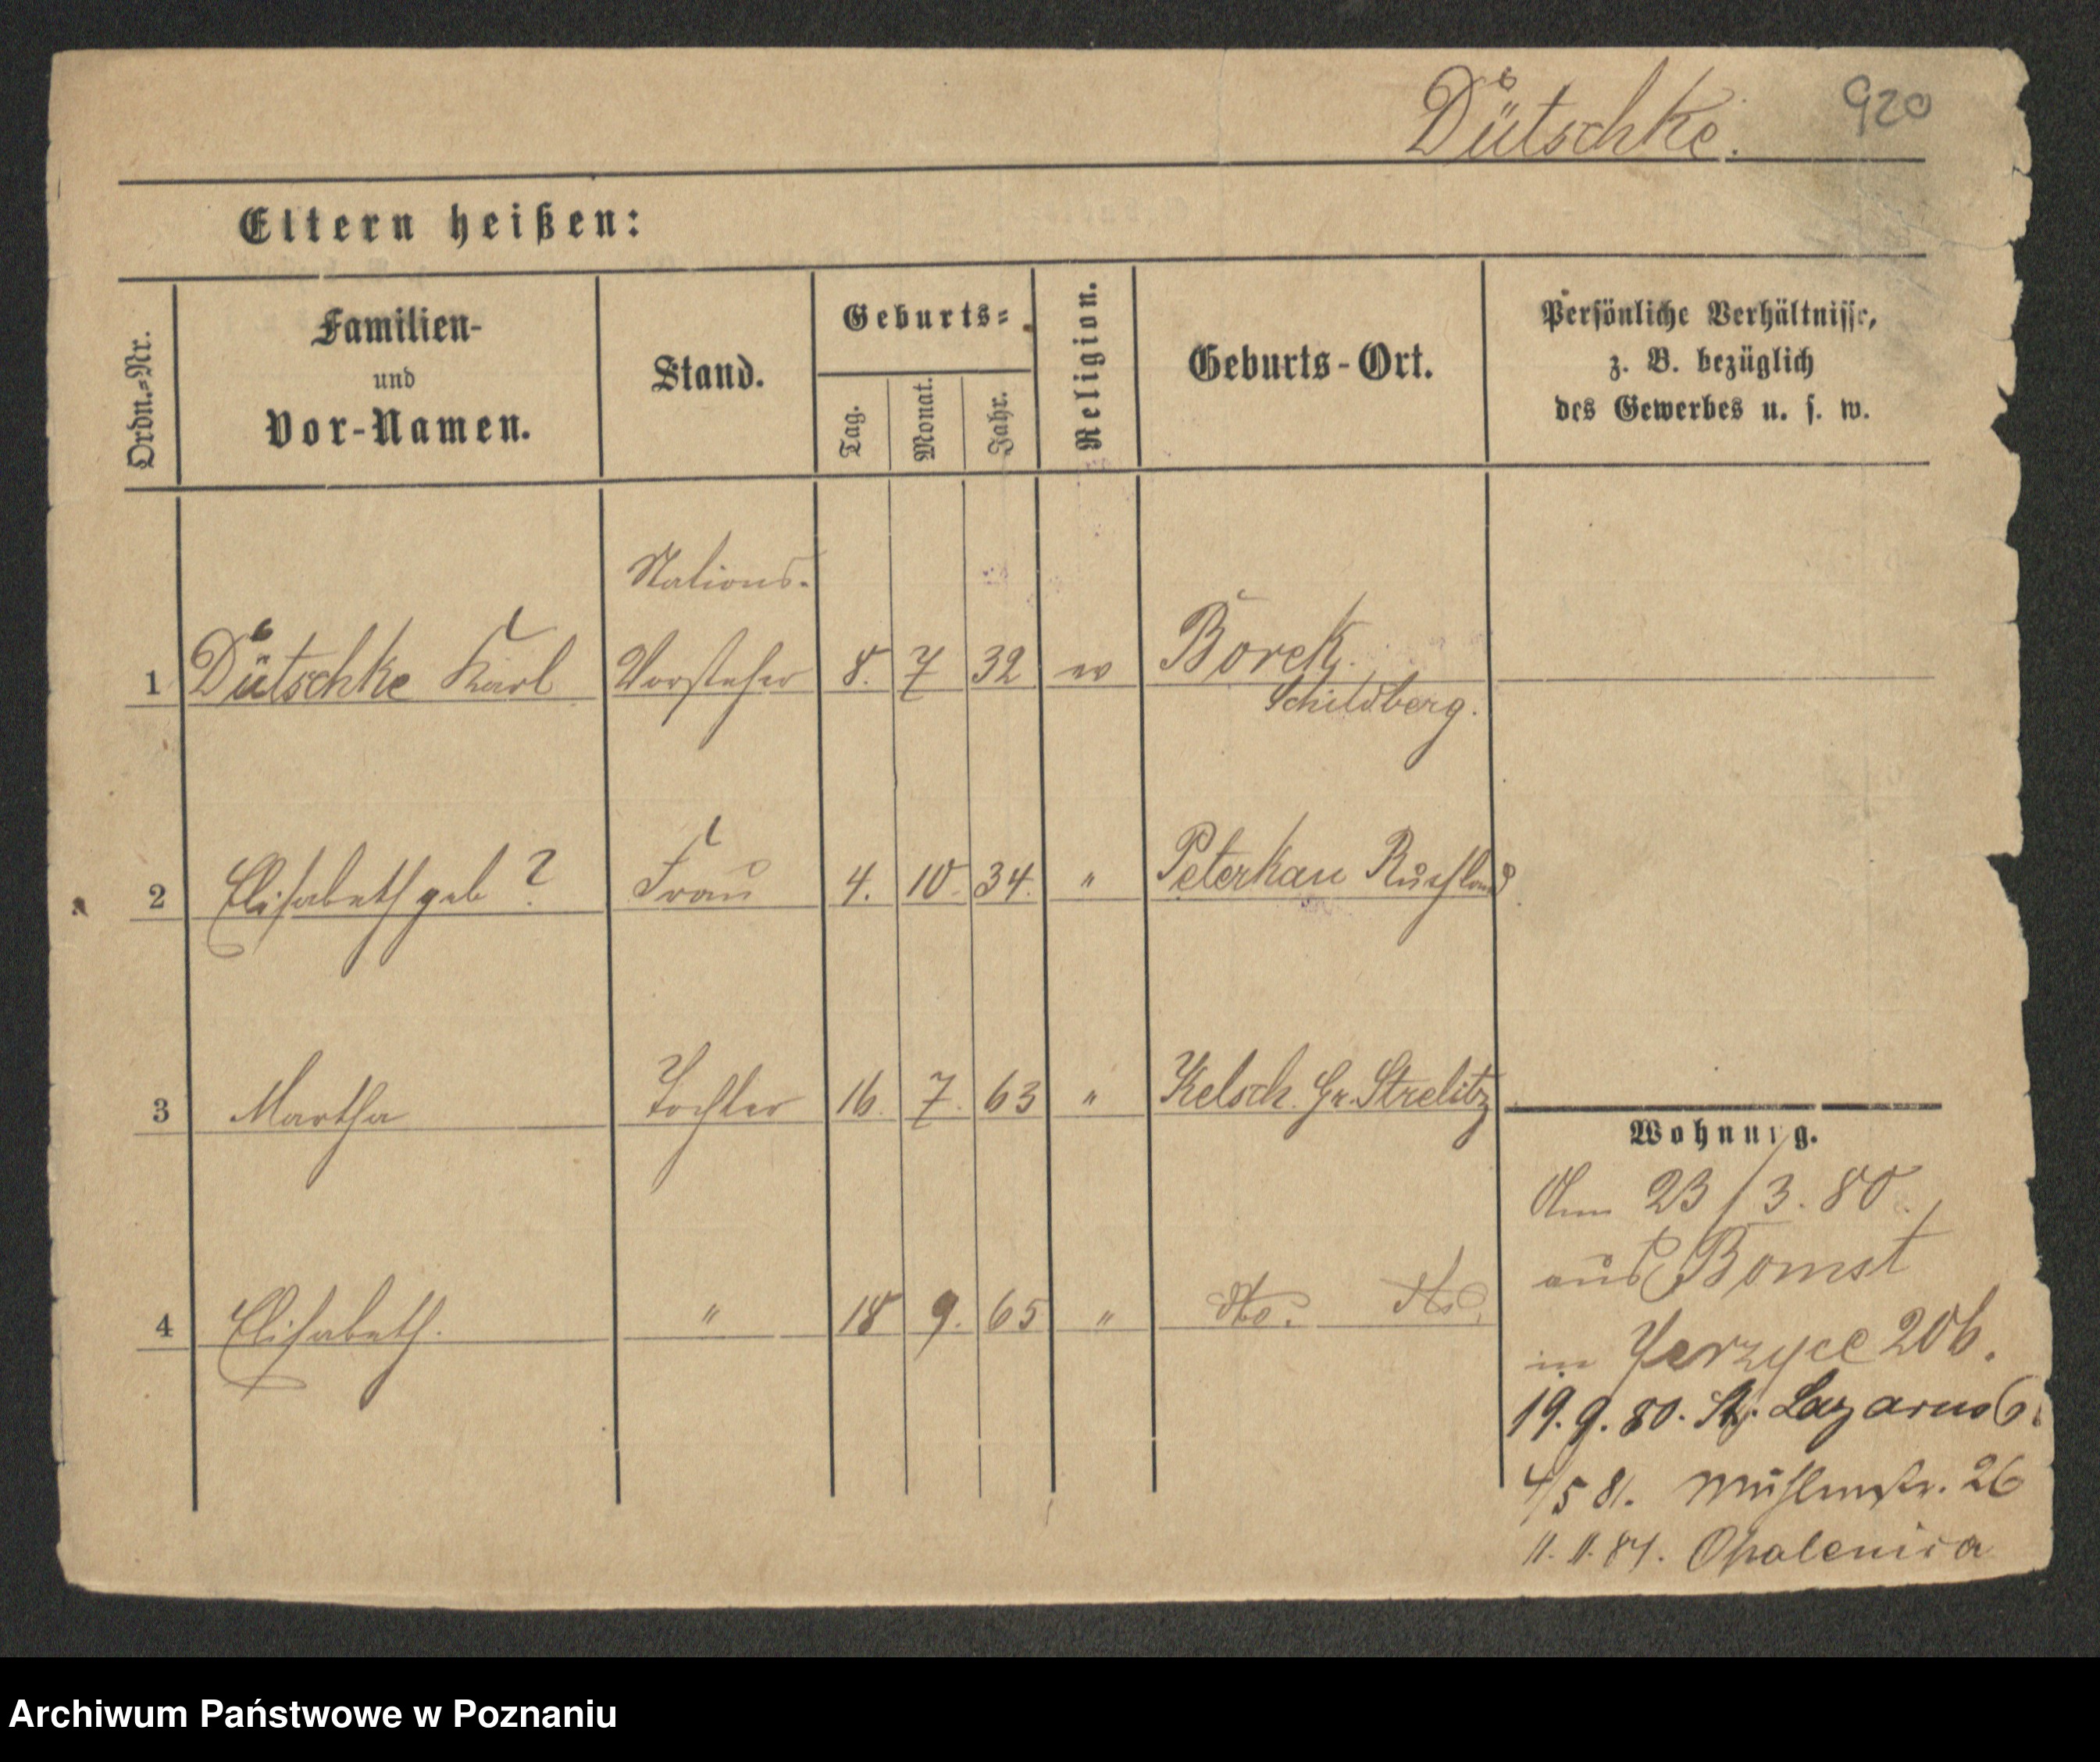 Dütschke.
920
Eltern heißen:
Ordn.=Nr.
Familien-
und
Vor-Namen.
Stand.
Geburts=
Tag.
Monat.
Jahr.
Religion.
Geburts-Ort.
Persönliche Verhältnisse,
z. B. bezüglich
des Gewerbes u. s. w.
Stations-
1 Dütschke Karl Vorsteher 8. 7 32 ev Borek.
Schildberg.
2 Elisabeth geb ? Frau 4. 10. 34. " Peterkau Russland
3 Martha Tochter 16. 7. 63 " Kelsch. Gr. Strelitz
4 Elisabeth. " 18 9. 65 " dto. dto.
Wohnung.
23/3. 80.
aus Bomst
in Jerzyce 20b.
19. 9. 80. St. Lazarus 6.
4/5 81. Mühlenstr. 26
11. 11. 84. Opalenica
Archiwum Państwowe w Poznaniu